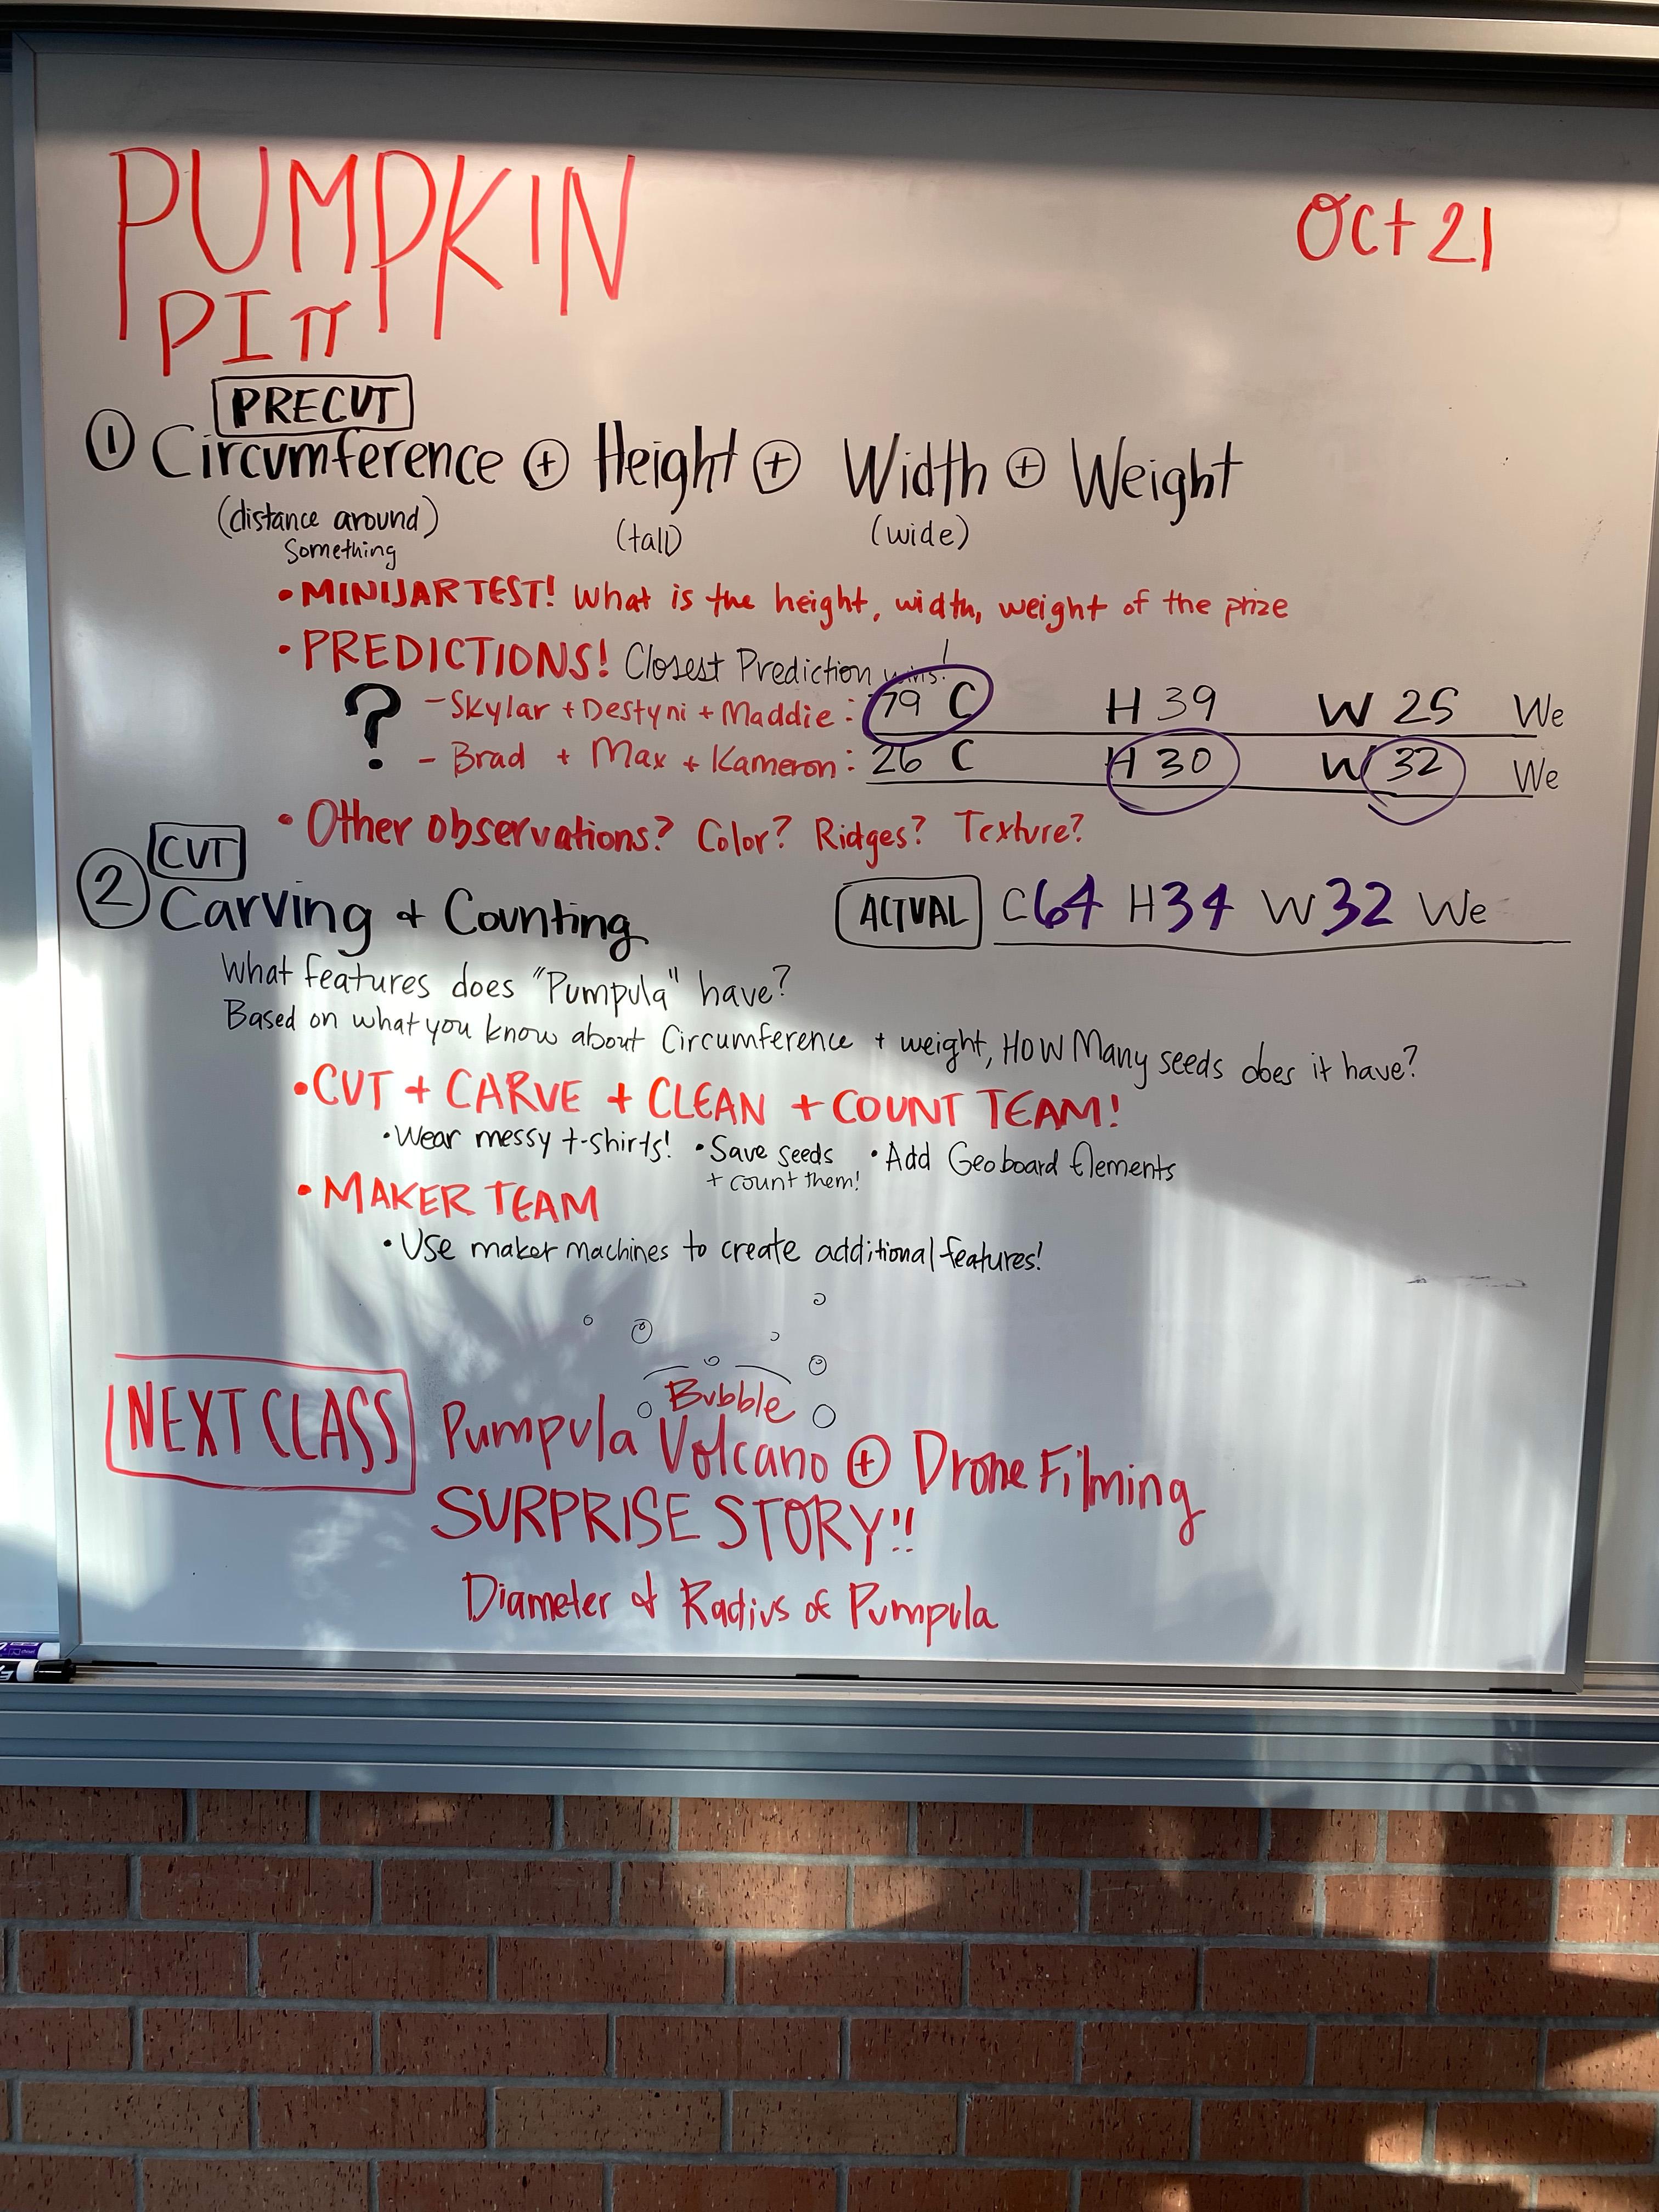 PUMPKIN
PI π
Oct 21
PRECUT
① Circumference + Height + Width + Weight
(distance around) (tall) (wide)
Something
• MINIJAR TEST! What is the height, width, weight of the prize
• PREDICTIONS! Closest Prediction wins!
? - Skylar + Destyni + Maddie: 79 C H 39 W 25 We
- Brad + Max + Kameron: 26 C H 30 W 32 We
• Other observations? Color? Ridges? Texture?
CUT
② Carving + Counting
ACTUAL C64 H34 W32 We
What features does "Pumpula" have?
Based on what you know about Circumference + weight, HOW Many seeds does it have?
• CUT + CARVE + CLEAN + COUNT TEAM!
• Wear messy t-shirts! • Save seeds • Add Geoboard Elements
+ count them!
• MAKER TEAM
• Use maker machines to create additional features!
NEXT CLASS
Bubble
Pumpula Volcano + Drone Filming
SURPRISE STORY!!
Diameter + Radius of Pumpula